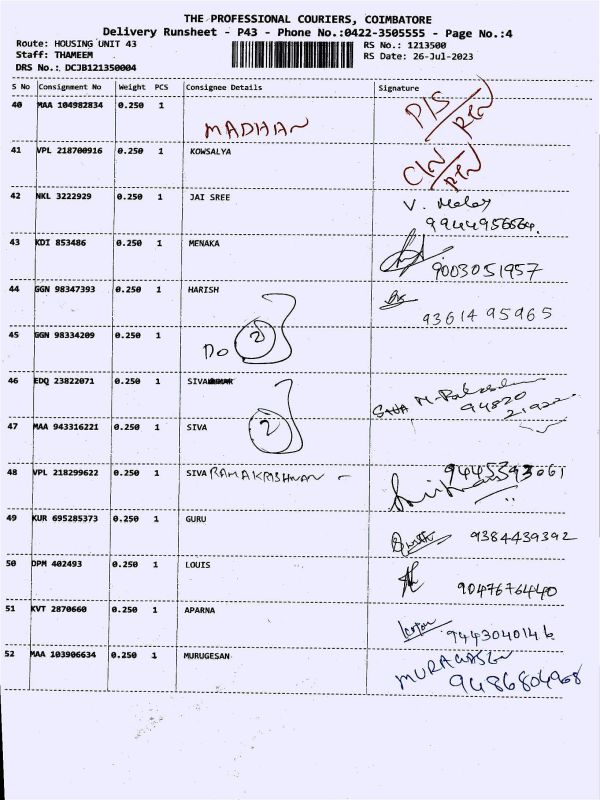 THE PROFESSIONAL COURIERS, COIMBATORE
Delivery Runsheet - P43 - Phone No.:0422-3505555 - Page No.:4
Route: HOUSING UNIT 43
RS No.: 1213500
Staff: THAMEEM
RS Date: 26-Jul-2023
DRS No.: DCJB121350004
S No Consignment No Weight PCS Consignee Details Signature
40 MAA 104982834 0.250 1 MADHAN P/S RTN
41 VPL 218700916 0.250 1 KOWSALYA C/N RTN
42 NKL 3222929 0.250 1 JAI SREE V.
9944956564.
43 KDI 853486 0.250 1 MENAKA 9003051957
44 GGN 98347393 0.250 1 HARISH
9361495965
45 GGN 98334209 0.250 1 Do 2
46 EDQ 23822071 0.250 1 SIVA
94820
21922
47 MAA 943316221 0.250 1 SIVA 2
48 VPL 218299622 0.250 1 SIVA RAMAKRISHNAN - 9445393061
49 KUR 695285373 0.250 1 GURU 9384439392
50 DPM 402493 0.250 1 LOUIS
9047676440
51 KVT 2870660 0.250 1 APARNA
9443040146
52 MAA 103906634 0.250 1 MURUGESAN MURAGASEN
9486804968